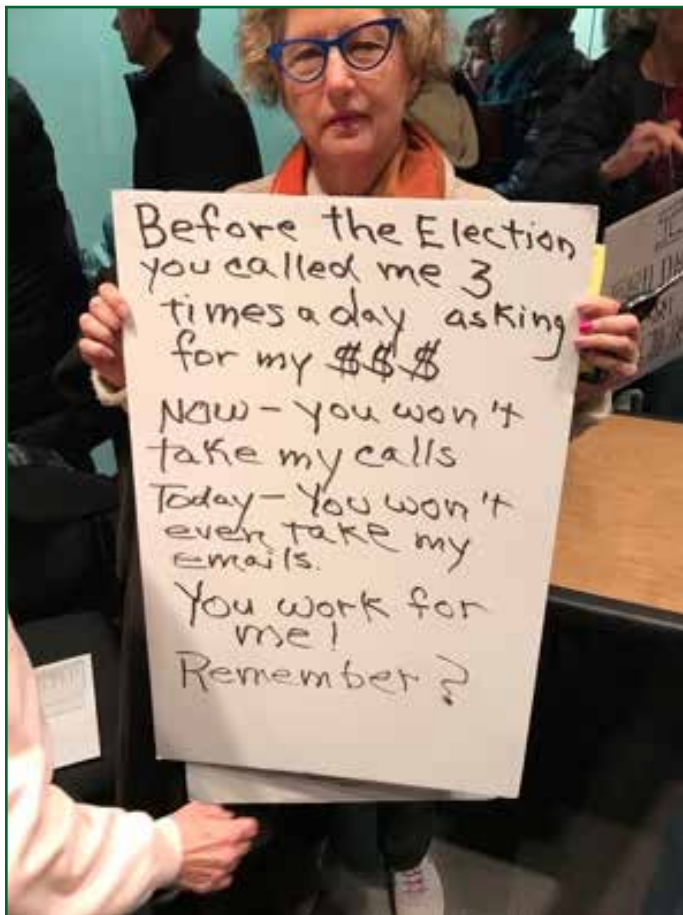 Before the Election
you called me 3
times a day asking
for my $$$
Now - you won't
take my calls
Today - You won't
even take my
emails.
You work for
me!
Remember?